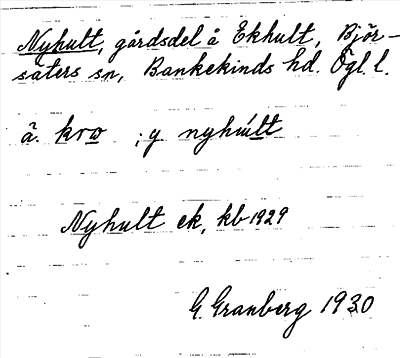 Nyhult, gårdsdel å Ekhult, Björ-
säters sn, Bankekinds hd. Ögl. l.
å. kro ; y nyhúlt
Nyhult ek, kb 1929
G. Granberg 1930